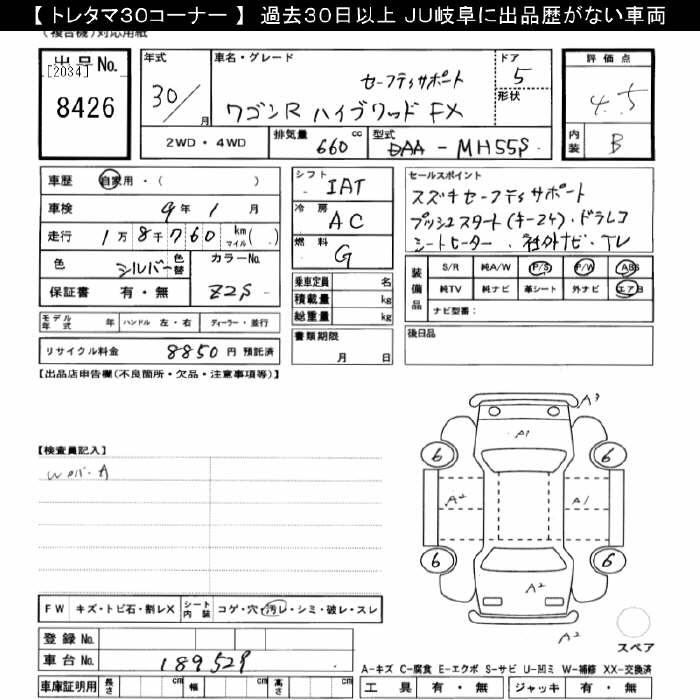 【 トレタマ30コーナー 】 過去30日以上 JU岐阜に出品歴がない車両
(複合機)対応用紙
出品No.
[2034]
8426
年式
30/
月
車名・グレード
セーフティサポート
ワゴンR ハイブリッド FX
ドア
5
形状
評価点
4.5
内装
B
2WD・4WD
排気量
660
cc
型式
DAA-MH55S
車歴
自家用・( )
車検
9年 1月
走行
1万8千760
km
マイル
( )
色
シルバー
色替
カラーNo.
Z2S
保証書 有・無
モデル年式
年
ハンドル 左・右
ディーラー・並行
リサイクル料金 8850円 預託済
シフト
IAT
冷房
AC
燃料
G
乗車定員
名
積載量
kg
総重量
kg
書類期限
月 日
セールスポイント
スズキセーフティサポート
プッシュスタート(キー2ケ)・ドラレコ
シートヒーター、社外ナビ・TV
装備品
S/R 純A/W P/S P/W ABS
純TV 純ナビ 革シート 外ナビ エアB
ナビ型番:
後日品
【出品店申告欄(不良箇所・欠品・注意事項等)】
【検査員記入】
A3
A1
6
6
A2
A1
6
6
A2
A2
スペア
FW キズ・トビ石・割レX
シート内装
コゲ・穴・汚レ・シミ・破レ・スレ
登録No.
車台No.
189529
車庫証明用
長さ
cm
幅
cm
高さ
cm
A-キズ C-腐食 E-エクボ S-サビ U-凹ミ W-補修 XX-交換済
工具 有・無
ジャッキ 有・無